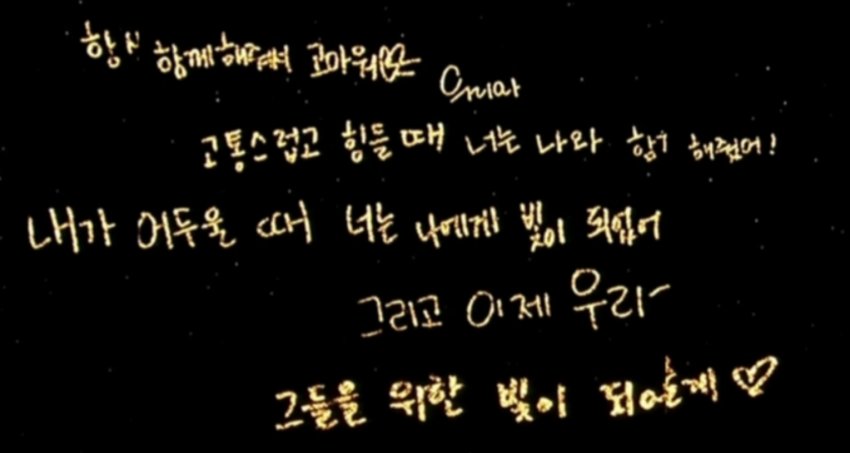 항시 함께해줘서 고마워♡
고통스럽고 힘들 때 너는 나와 함께 해줬어!
내가 어두울 때 너는 나에게 빛이 되었어
그리고 이제 우리~
그들을 위한 빛이 되어줄게 ♡